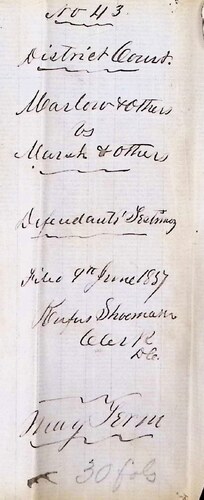 No 43
District Court.
Marlow & others
vs
Marsh & others
Defendants' Testimony
Filed 9th June 1857
Rufus Shoemaker
Clerk
DC.
May Term
30 fols